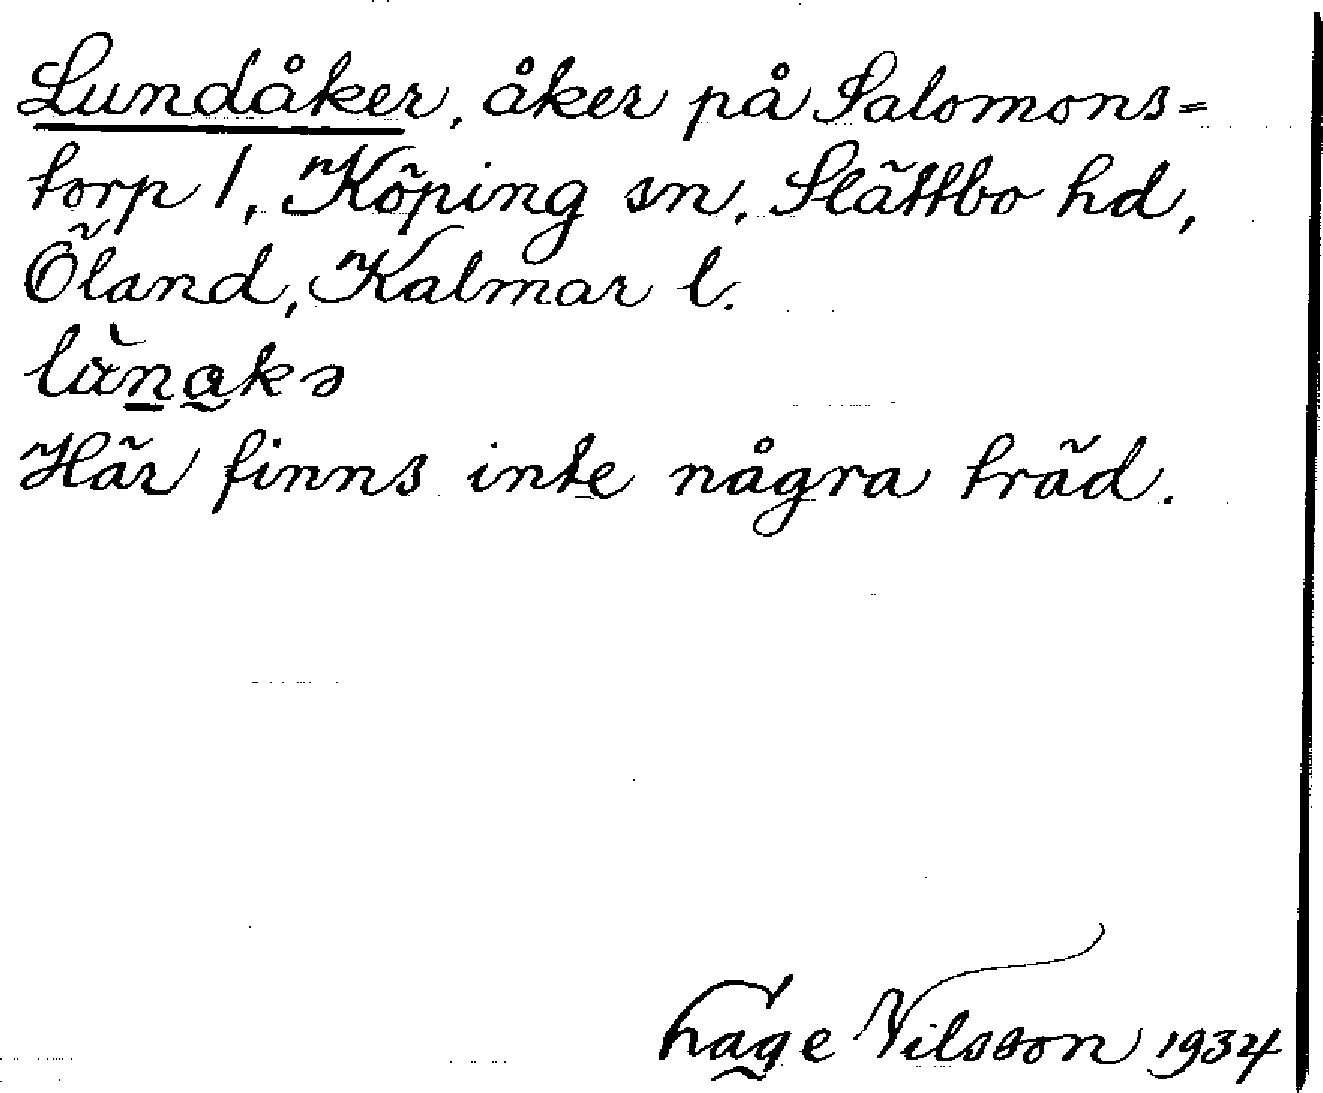 Lundåker, åker på Salomons=
torp 1, Köping sn, Slättbo hd,
Öland, Kalmar l.
Här finns inte några träd.
Tage Nilsson 1934